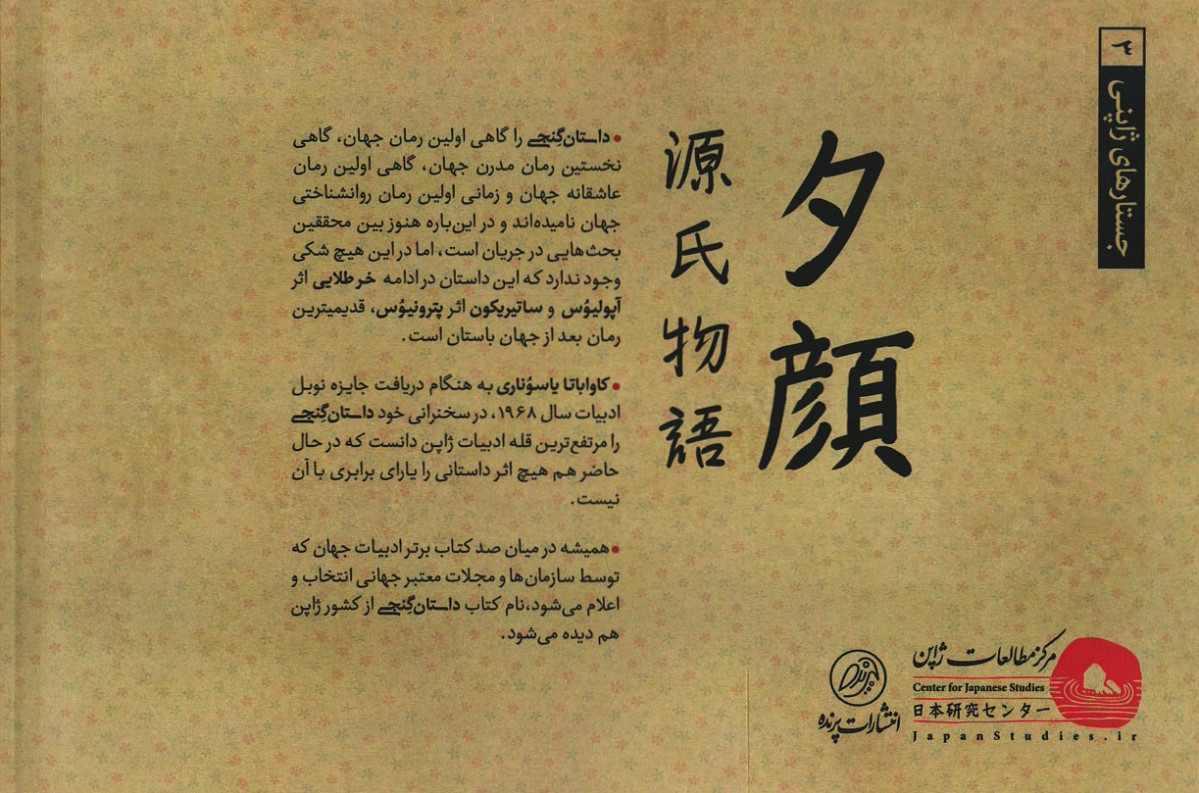 ۳
جستارهای ژاپنی
夕顔
源氏物語
• داستان گِنجی را گاهی اولین رمان جهان، گاهی
نخستین رمان مدرن جهان، گاهی اولین رمان
عاشقانه جهان و زمانی اولین رمان روانشناختی
جهان نامیده‌اند و در این‌باره هنوز بین محققین
بحث‌هایی در جریان است، اما در این هیچ شکی
وجود ندارد که این داستان در ادامه خر طلایی اثر
آپولیوُس و ساتیریکون اثر پترونیوُس، قدیمیترین
رمان بعد از جهان باستان است.
• کاواباتا یاسوُناری به هنگام دریافت جایزه نوبل
ادبیات سال ۱۹۶۸، در سخنرانی خود داستان گِنجی
را مرتفع‌ترین قله ادبیات ژاپن دانست که در حال
حاضر هم هیچ اثر داستانی را یارای برابری با آن
نیست.
• همیشه در میان صد کتاب برتر ادبیات جهان که
توسط سازمان‌ها و مجلات معتبر جهانی انتخاب و
اعلام می‌شود، نام کتاب داستان گِنجی از کشور ژاپن
هم دیده می‌شود.
مرکز مطالعات ژاپن
Center for Japanese Studies
日本研究センター
JapanStudies.ir
پرنده
انتشارات پرنده